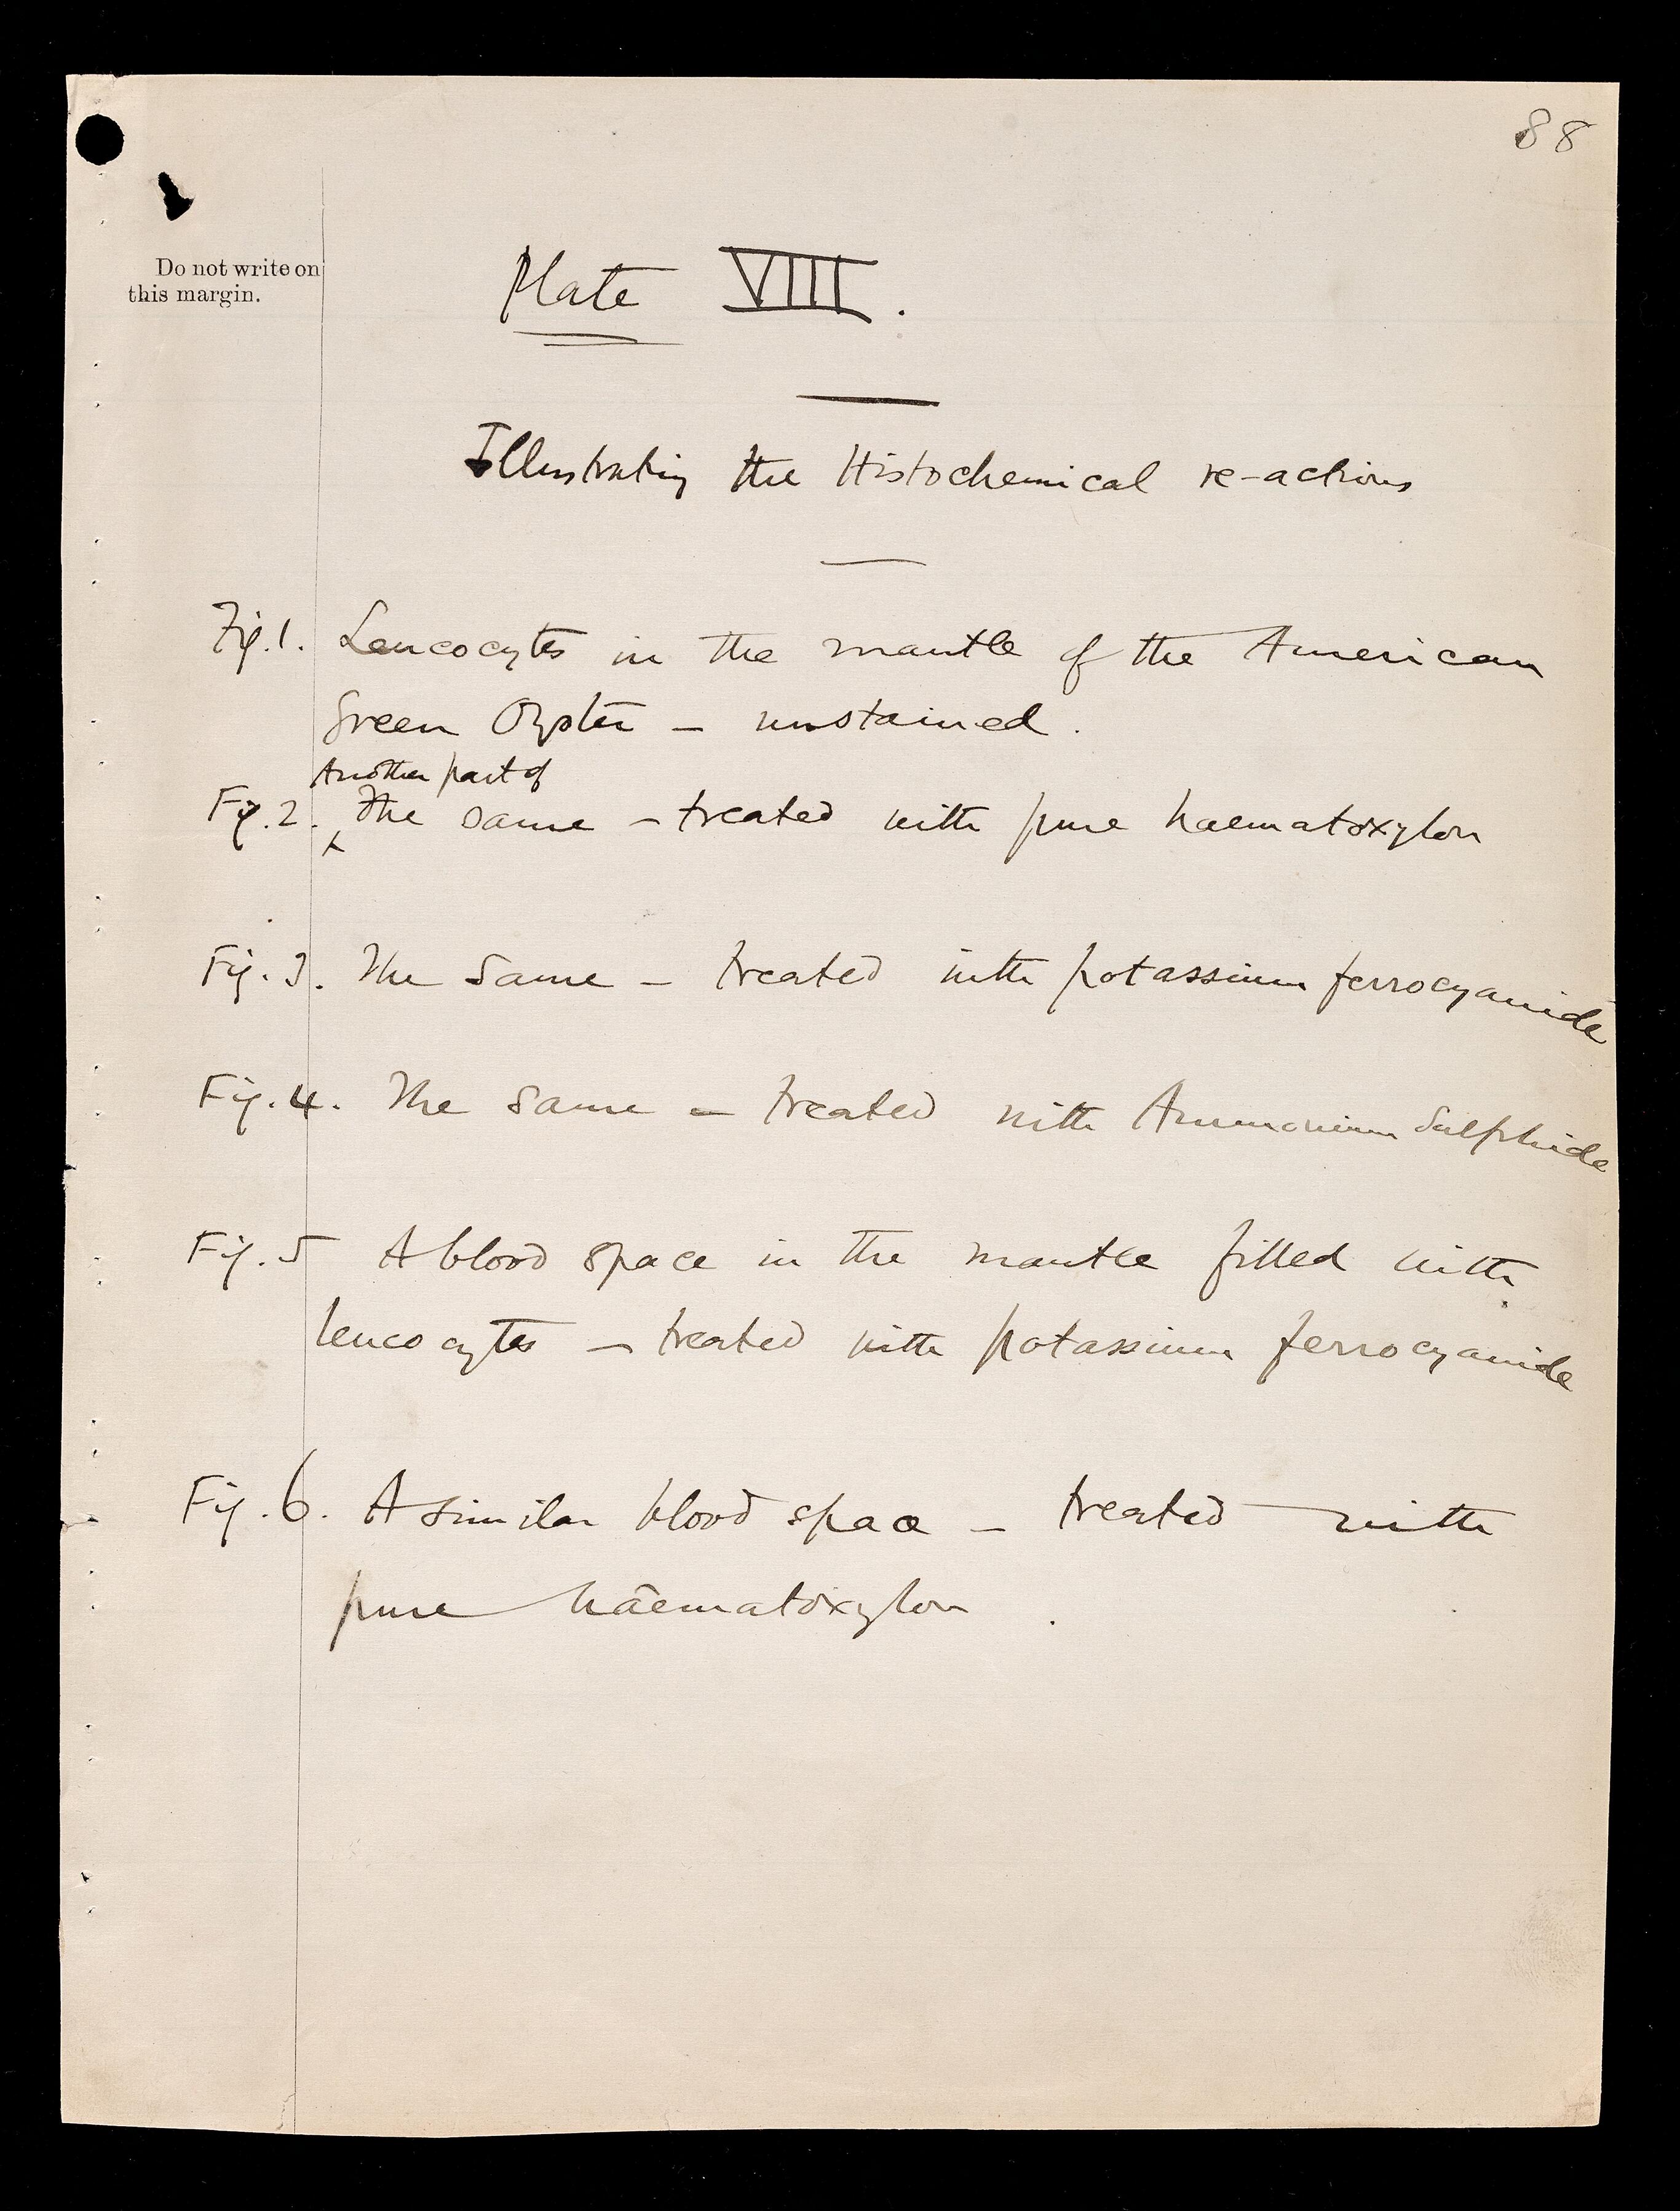 88
Do not write on
this margin.
Plate VIII.
Illustrating the Histochemical re-actions
Fig. 1. Leucocytes in the mantle of the American
Green Oyster – unstained.
Another part of
Fig. 2. The same – treated with pure haematoxylon
Fig. 3. The same – treated with potassium ferrocyanide
Fig. 4. The same – treated with Ammonium Sulphide
Fig. 5 A blood space in the mantle filled with
leucocytes – treated with potassium ferrocyanide
Fig. 6. A similar blood space – treated with
pure haematoxylon .